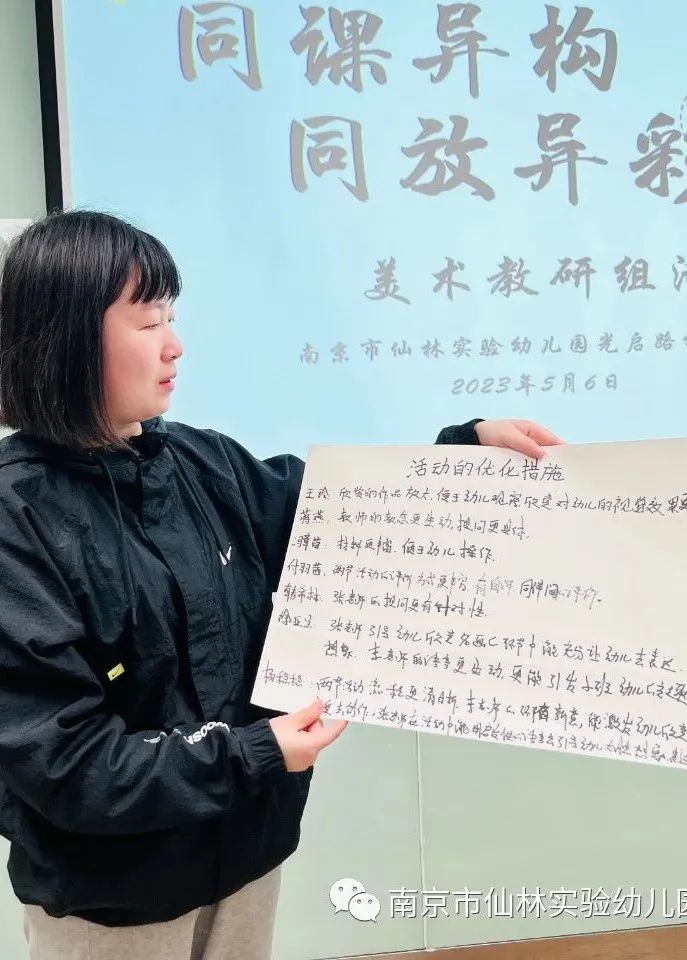 同课异构
同放异彩
美术教研组活
南京市仙林实验幼儿园光启路
2023年5月6日
活动的优化措施
王玲：欣赏的作品放大，便于幼儿观察欣赏对幼儿的视觉效果更
蒋燕：教师的教态更生动，提问更具体。
材料更丰富，便于幼儿操作。
付羽茜：两节活动的评价方式更丰富，有自评 同伴间的评价。
张老师的提问更有针对性。
张老师引导幼儿欣赏名画的环节中能充分让幼儿去表达、
想象，李老师的语言更生动，更能引发小班幼儿
两节活动流程更清晰 李老师
去创作，张老师在活动中能用
南京市仙林实验幼儿园